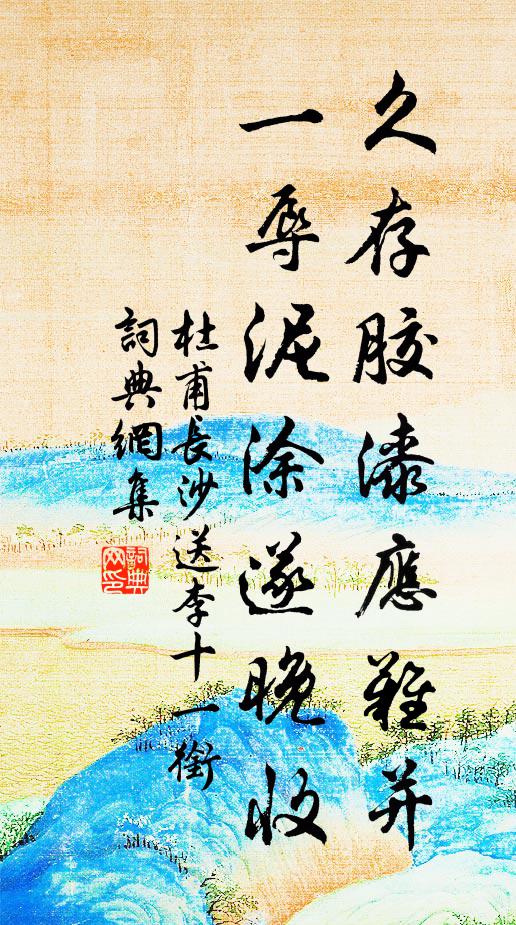 久存胶漆應難并
一辱泥涂遂晚收
杜甫長沙送李十一銜
詞典網集
詞典网印